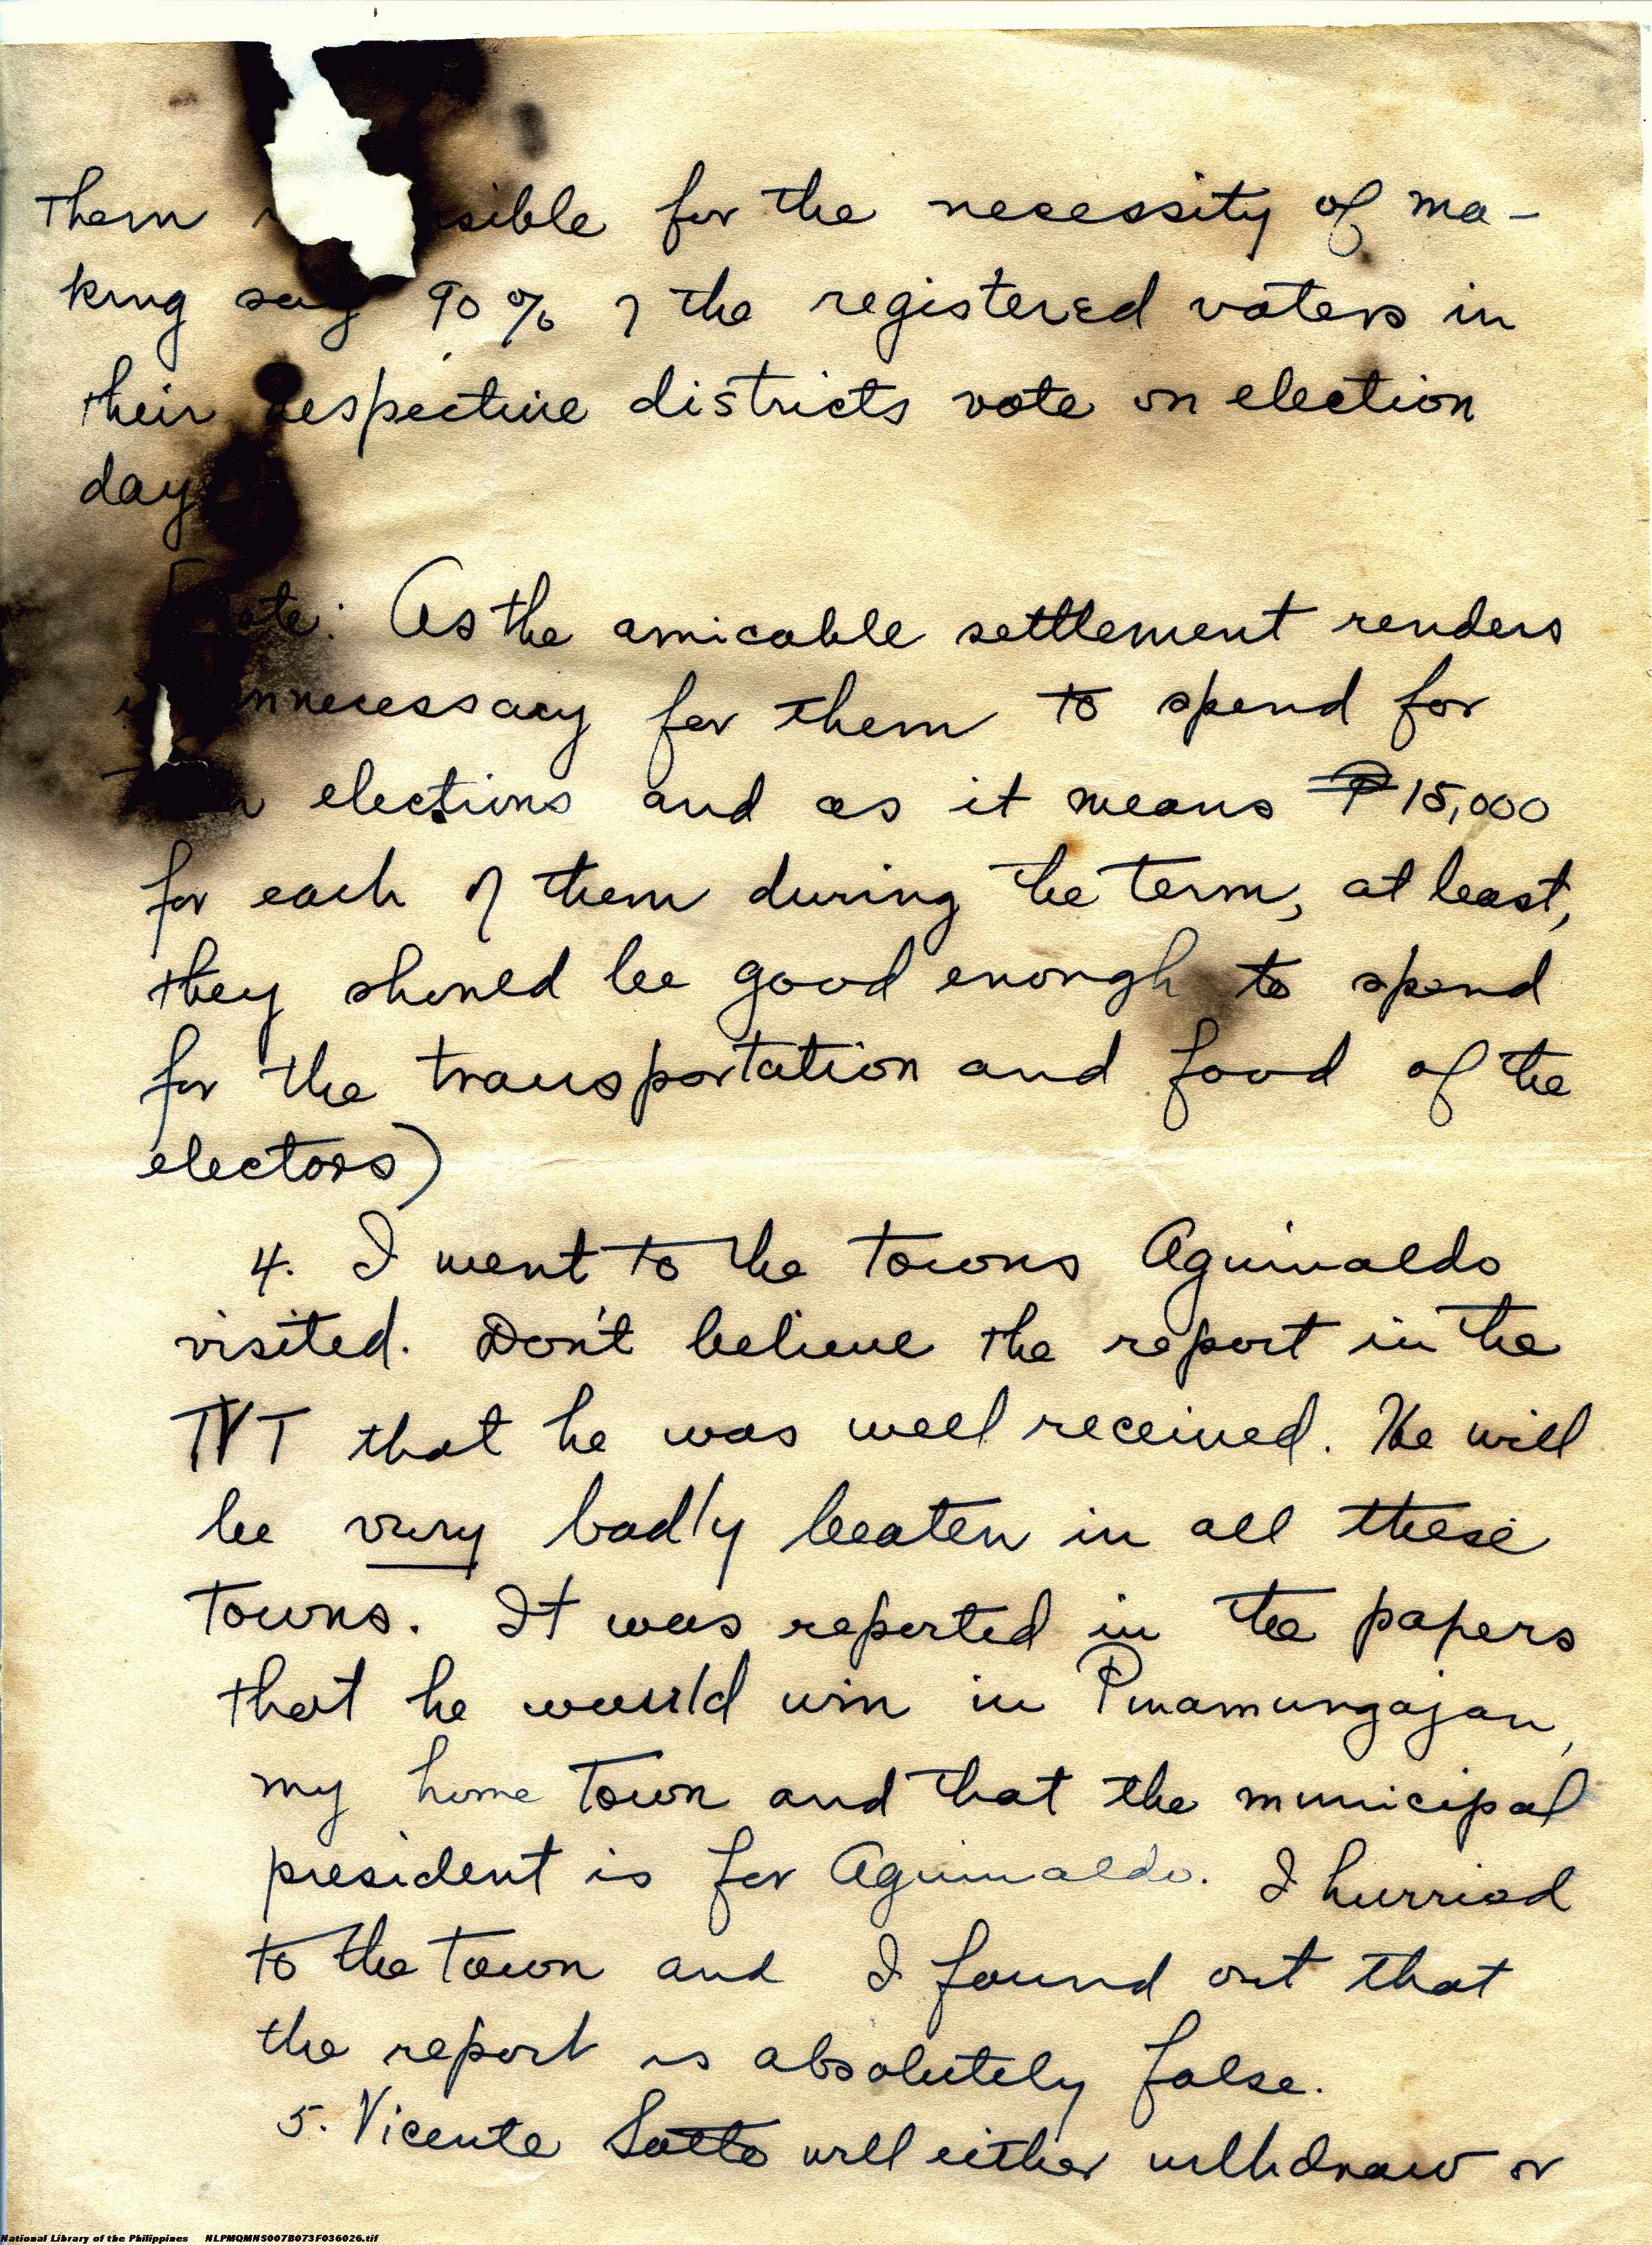 them sible for the necessity of ma-
king say 90% of the registered voters in
their respective districts vote on election
day
ote: As the amicable settlement renders
nnecessary for them to spend for
elections and as it means ₱15,000
for each of them during the term, at least,
they should be good enough to spend
for the transportation and food of the
electors)
4. I went to the towns Aguinaldo
visited. Don't believe the report in the
TVT that he was well received. He will
be very badly beaten in all these
towns. It was reported in the papers
that he would win in Pinamungajan,
my home town and that the municipal
president is for Aguinaldo. I hurried
to the town and I found out that
the report is absolutely false.
5. Vicente Sotto will either withdraw or
National Library of the Philippines NLPMQMNS007B073F036026.tif